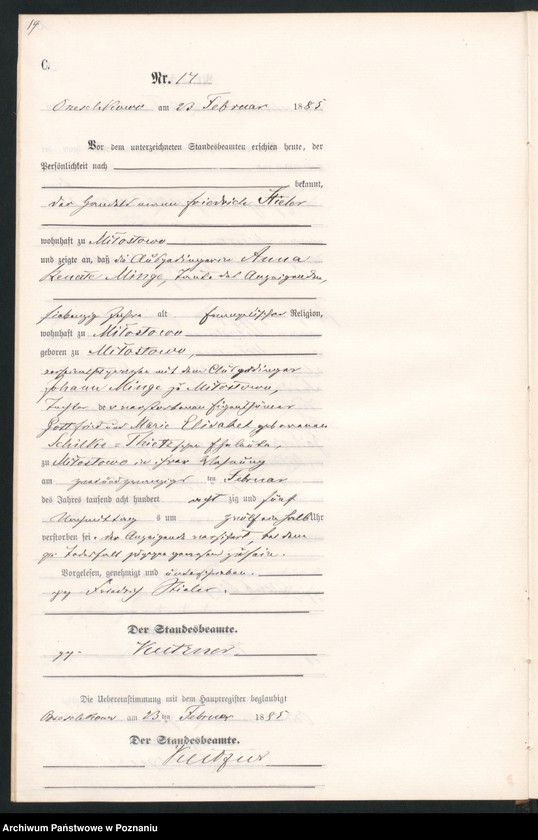 14
C.
Nr. 14
am 23 Februar 1885
Vor dem unterzeichneten Standesbeamten erschien heute, der
Persönlichkeit nach
bekannt,
der Handelsmann Friedrich Stieler
wohnhaft zu Miłostowo
und zeigte an, daß die Ausgedingerin Anna
Renate Minge, Tante des Anzeigenden,
siebenzig Jahre alt evangelischer Religion,
wohnhaft zu Miłostowo
geboren zu Miłostowo,
verheirathet gewesen mit dem Ausgedinger
Johann Minge zu Miłostowo,
Tochter der verstorbenen Eigenthümer
Gottfried und Marie Elisabet geborenen
Schilke = Eheleute,
zu Miłostowo in ihrer Wohnung
am zwei und zwanzigsten Februar
des Jahres tausend acht hundert acht zig und fünf
Vormittag s um zwölf ein halb Uhr
verstorben sei. der Anzeigende versichert, bei dem
Todesfall zugegen gewesen zu sein.
Vorgelesen, genehmigt und unterschrieben.
gez. Friedrich Stieler.
Der Standesbeamte.
gez. Kutzner
Die Uebereinstimmung mit dem Hauptregister beglaubigt
am 23 ten Februar 1885
Der Standesbeamte.
Kutzner
Archiwum Państwowe w Poznaniu